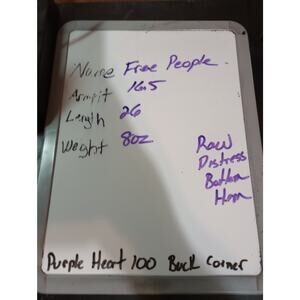 Name Free People.
Armpit 16.5
Length 26
Weight 8oz
Raw
Distress
Bottom
Hem
Purple Heart 100 Buck Corner